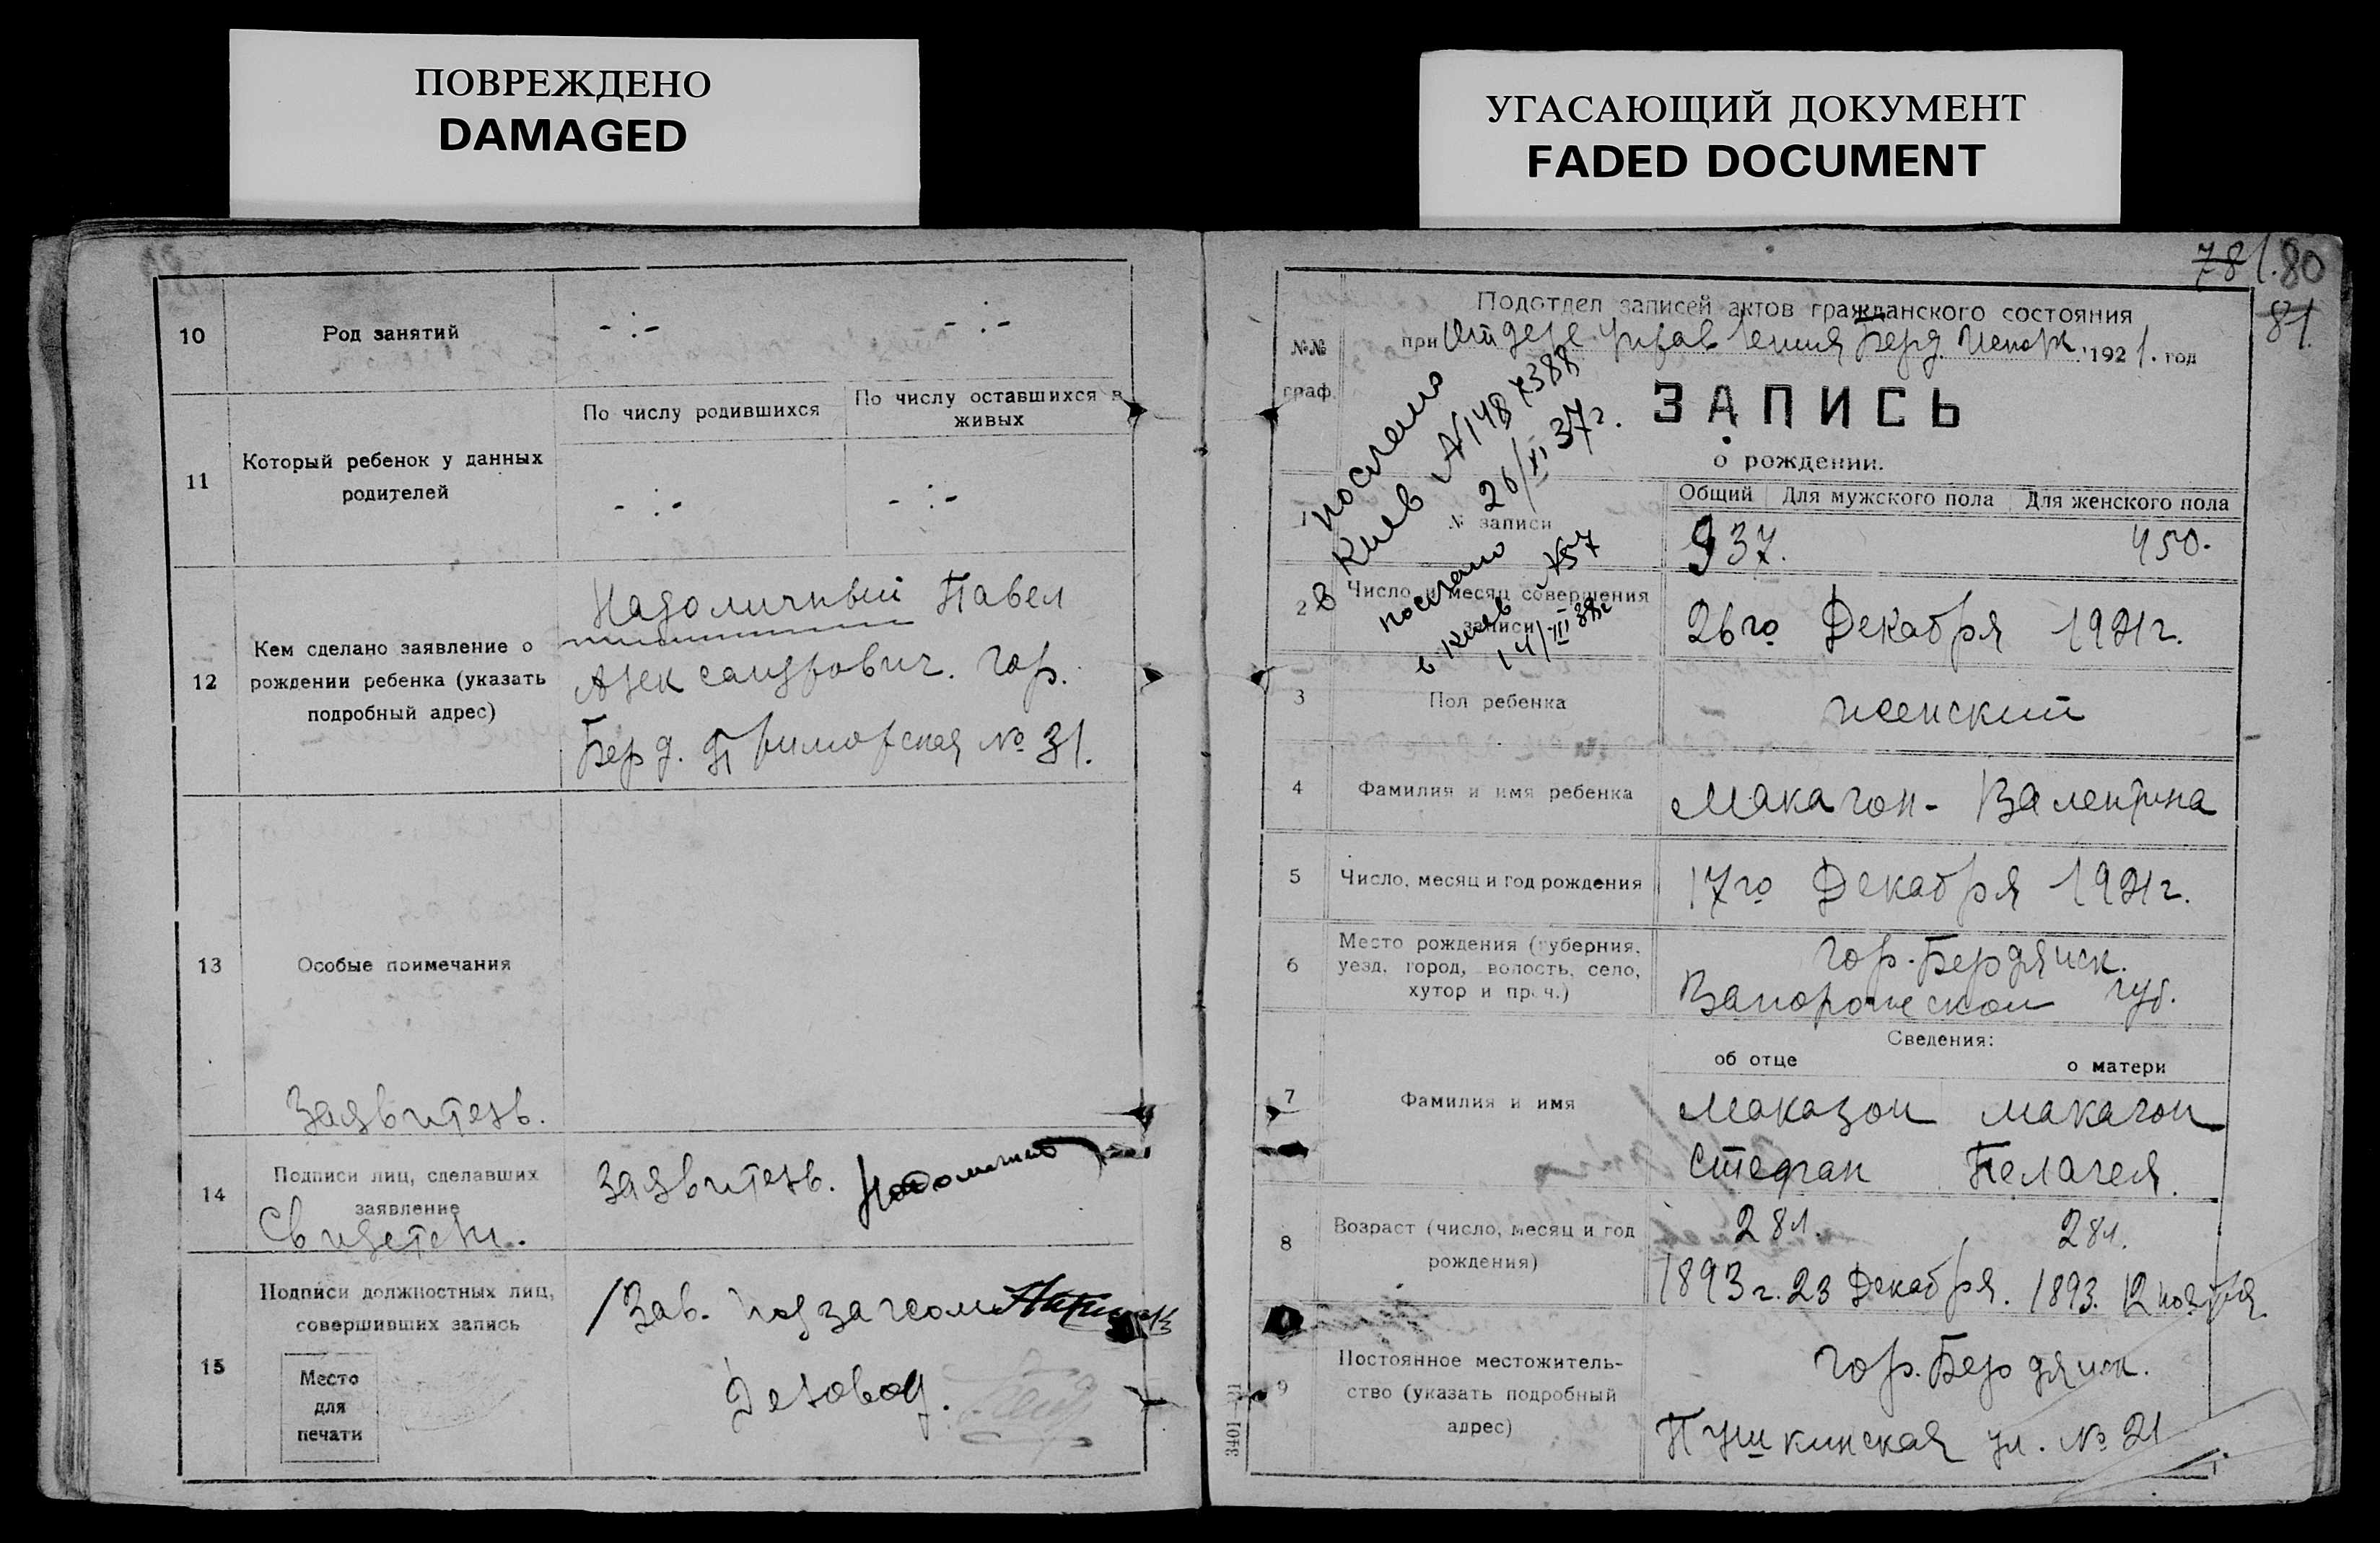 ПОВРЕЖДЕНО
DAMAGED
УГАСАЮЩИЙ ДОКУМЕНТ
FADED DOCUMENT
10 Род занятий -:- -:-
11 Который ребенок у данных родителей
По числу родившихся
По числу оставшихся в живых
-:- -:-
12 Кем сделано заявление о
рождении ребенка (указать
подробный адрес)
Надоличный Павел
Александрович. гор.
Берд. Приморская № 31.
13 Особые примечания
Заявитель.
14 Подписи лиц, сделавших
заявление
Свидетели.
Заявитель.
15 Подписи должностных лиц,
совершивших запись
Место
для
печати
Зав. подзагсом
Деловод.
78 80
81
1.
№№
граф.
Подотдел записей актов гражданского состояния
при Отделе Управления Берд. Исполк. 1921. год
ЗАПИСЬ
о рождении.
послано
в Киев №148
26/XI 37г.
послано
в Киев №57
14/III 38г
1 № записи
Общий Для мужского пола Для женского пола
937. 450.
2 Число и месяц совершения
записи
26го Декабря 1921г.
3 Пол ребенка женский
4 Фамилия и имя ребенка Макагон - Валентина
5 Число, месяц и год рождения 17го Декабря 1921г.
6 Место рождения (губерния,
уезд, город, волость, село,
хутор и проч.)
гор. Бердянск.
Запорожской губ.
Сведения:
об отце о матери
7 Фамилия и имя
Макагон Макагон
Стефан Пелагея.
8 Возраст (число, месяц и год
рождения)
28л. 28л.
1893г. 23 Декабря. 1893. 12 ноября.
9 Постоянное местожитель-
ство (указать подробный
адрес)
гор. Бердянск.
Пушкинская ул. № 21